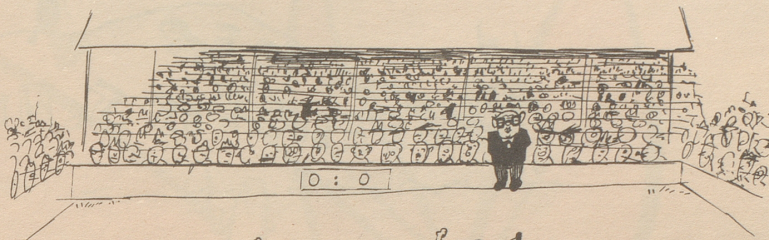 0 : 0